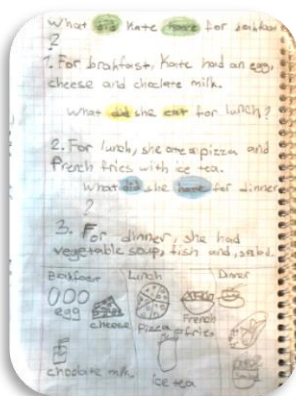 What did Kate have for
?
1. For brakfast, Kate had an egg,
cheese and choclate milk.
What did she eat for lunch?
2. For lunch, she ate a pizza and
French fries with ice tea.
What did she have for dinner
?
3. For dinner, she had
vegetable soup, fish and, salad.
Lunch Dinner
egg
cheese Pizza French
fries
chocolate milk
ice tea